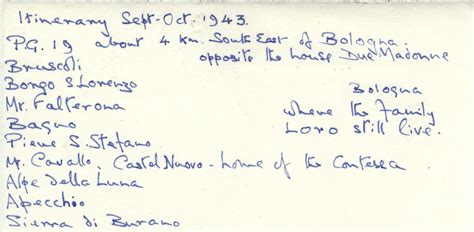 Itinerary Sept-Oct. 1943.
P.G. 19 about 4 km. South East of Bologna.
opposite the house Due Madonne
Bruscoli
Borgo S Lorenzo
Bologna
Mt. Falterona
where the family
Bagno
Loro still live.
Pieve S. Stefano
M. Cavallo, Castel Nuovo - home of the Contessa
Alpe Della Luna
Apecchio
Sierra di Burano